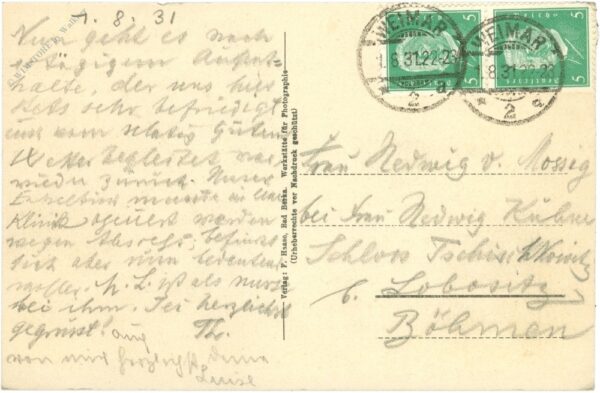 1. 8. 31
Nun geht es nach
tägigem Aufent-
halte, der uns hier
stets sehr befriedigt
und vom relativ guten
Wetter begleitet war
wieder zurück.
Enkelkind musste in
Klinik operiert werden
wegen Abszess, befindet
sich aber nun bedeutend
wohler. L. ist als
bei ihm. Sei herzlichst
gegrüsst! Th.
Auch
von mir herzlichst deine
Luise
Verlag: F. Haase, Bad Berka. Werkstätte für Photographie
(Urheberrechte vor Nachdruck geschützt)
WEIMAR
1.8.31.22-23
* 2 a
WEIMAR
8.31.22-23
* 2 a
5
5
5
Frau Hedwig v. Mossig
bei Frau Hedwig Kühne
Schloss Tschischkowitz
b. Lobositz
Böhmen